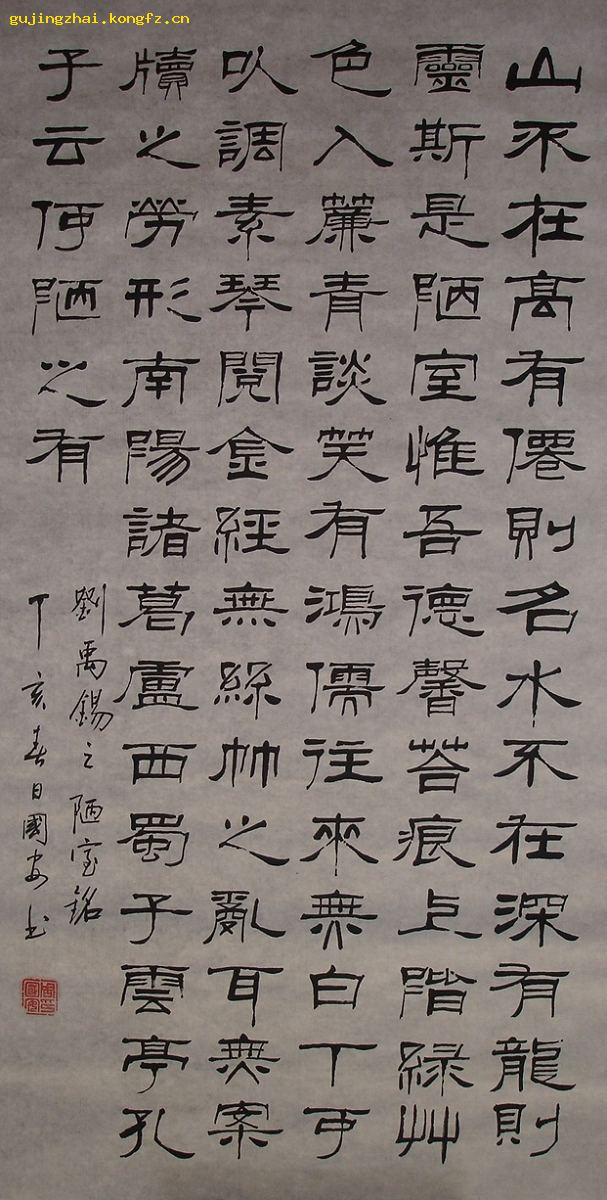 gujingzhai.kongfz.cn
山不在高有僊則名水不在深有龍則
靈斯是陋室惟吾德馨苔痕上階綠艸
色入簾青談笑有鴻儒往來無白丁可
以調素琴閱金經無絲竹之亂耳無案
牘之勞形南陽諸葛盧西蜀子雲亭孔
子云何陋之有
劉禹錫之陋室銘
丁亥春日國安书